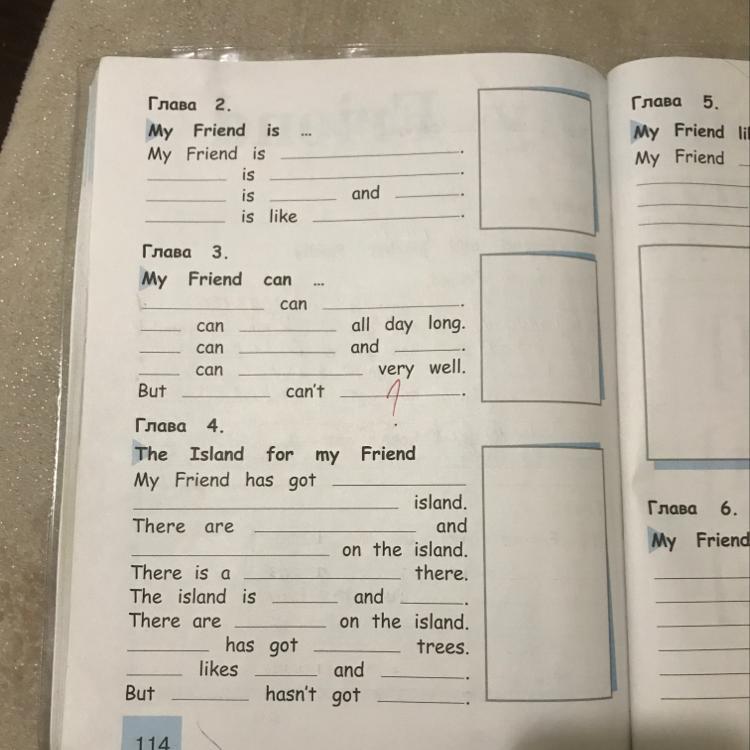 Глава 2.
My Friend is ...
My Friend is ____________.
______ is ____________.
______ is ______ and ______.
______ is like ____________.
Глава 3.
My Friend can ...
____________ can ____________.
____ can ________ all day long.
____ can ________ and ______.
____ can ____________ very well.
But ________ can't ____________.
Глава 4.
The Island for my Friend
My Friend has got ____________
____________________ island.
There are ______________ and
________________ on the island.
There is a ____________ there.
The island is ______ and ______.
There are ________ on the island.
______ has got ________ trees.
____ likes ______ and ______.
But ______ hasn't got ______.
114
Глава 5.
My Friend
My Friend
Глава 6.
My Friend